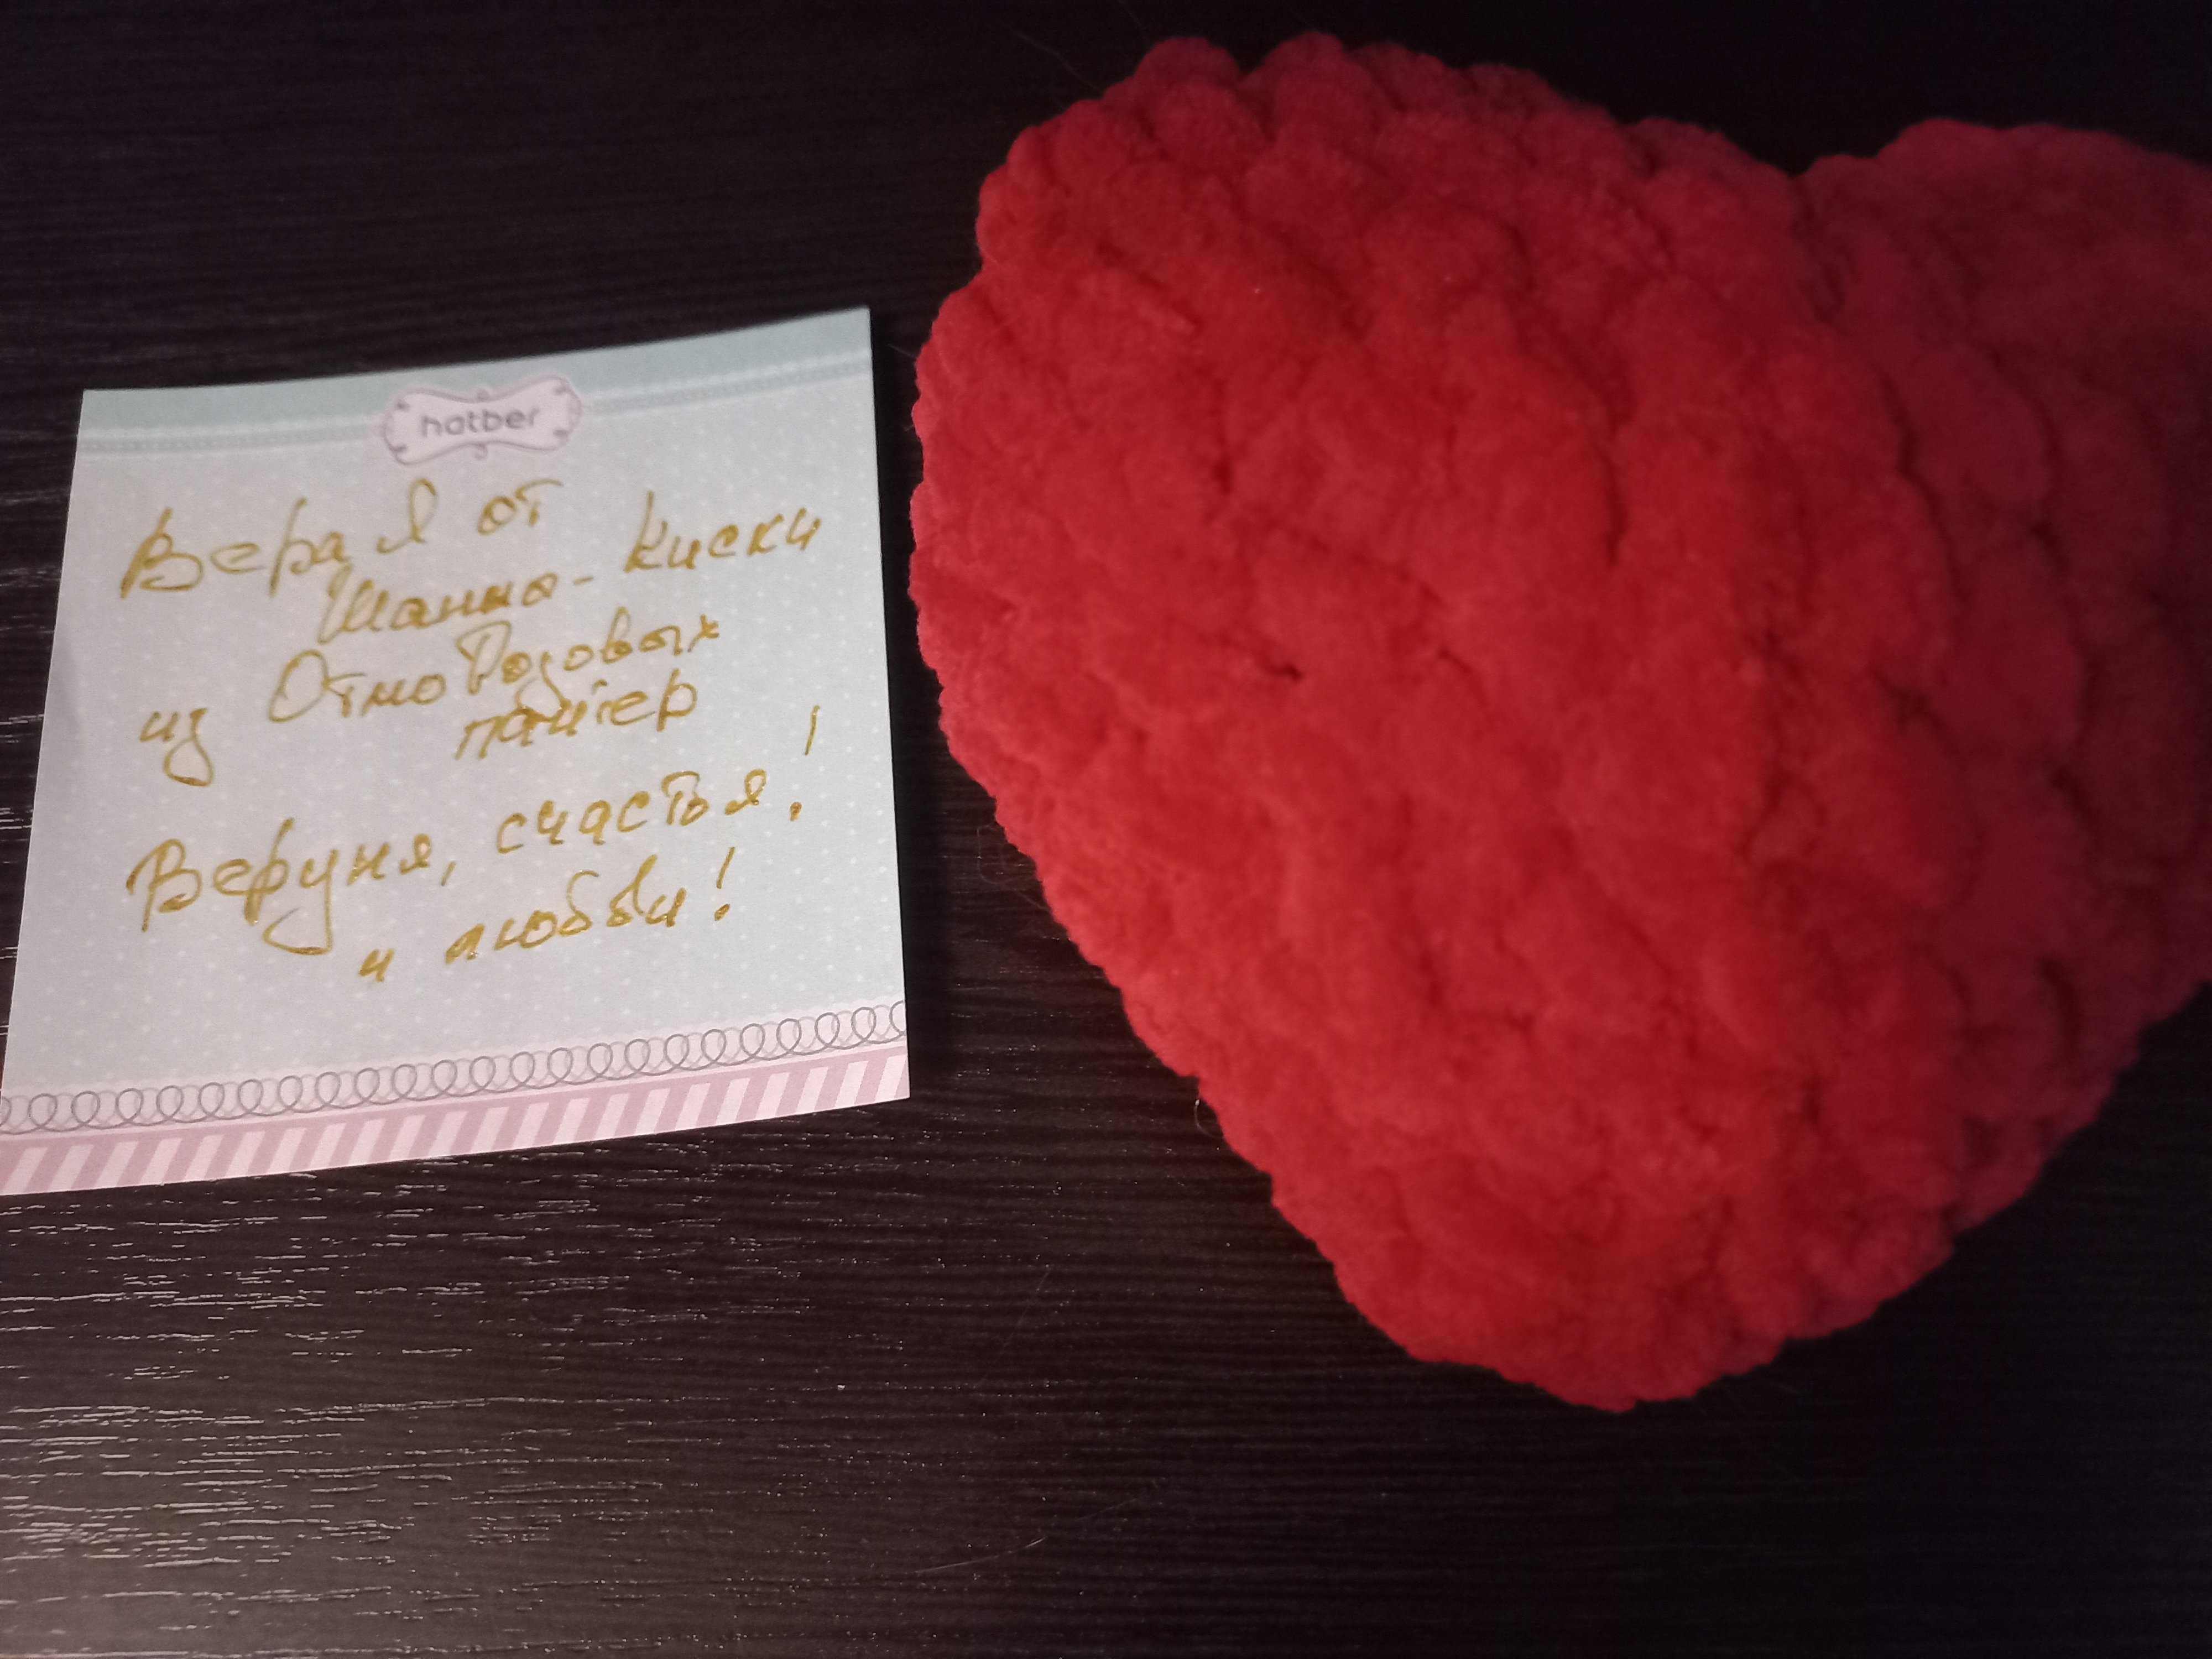 hatber
Вера Я от
Шанна-Киски
из ОтмоРозовых
пантер
Веруня, счастья!
и любви!